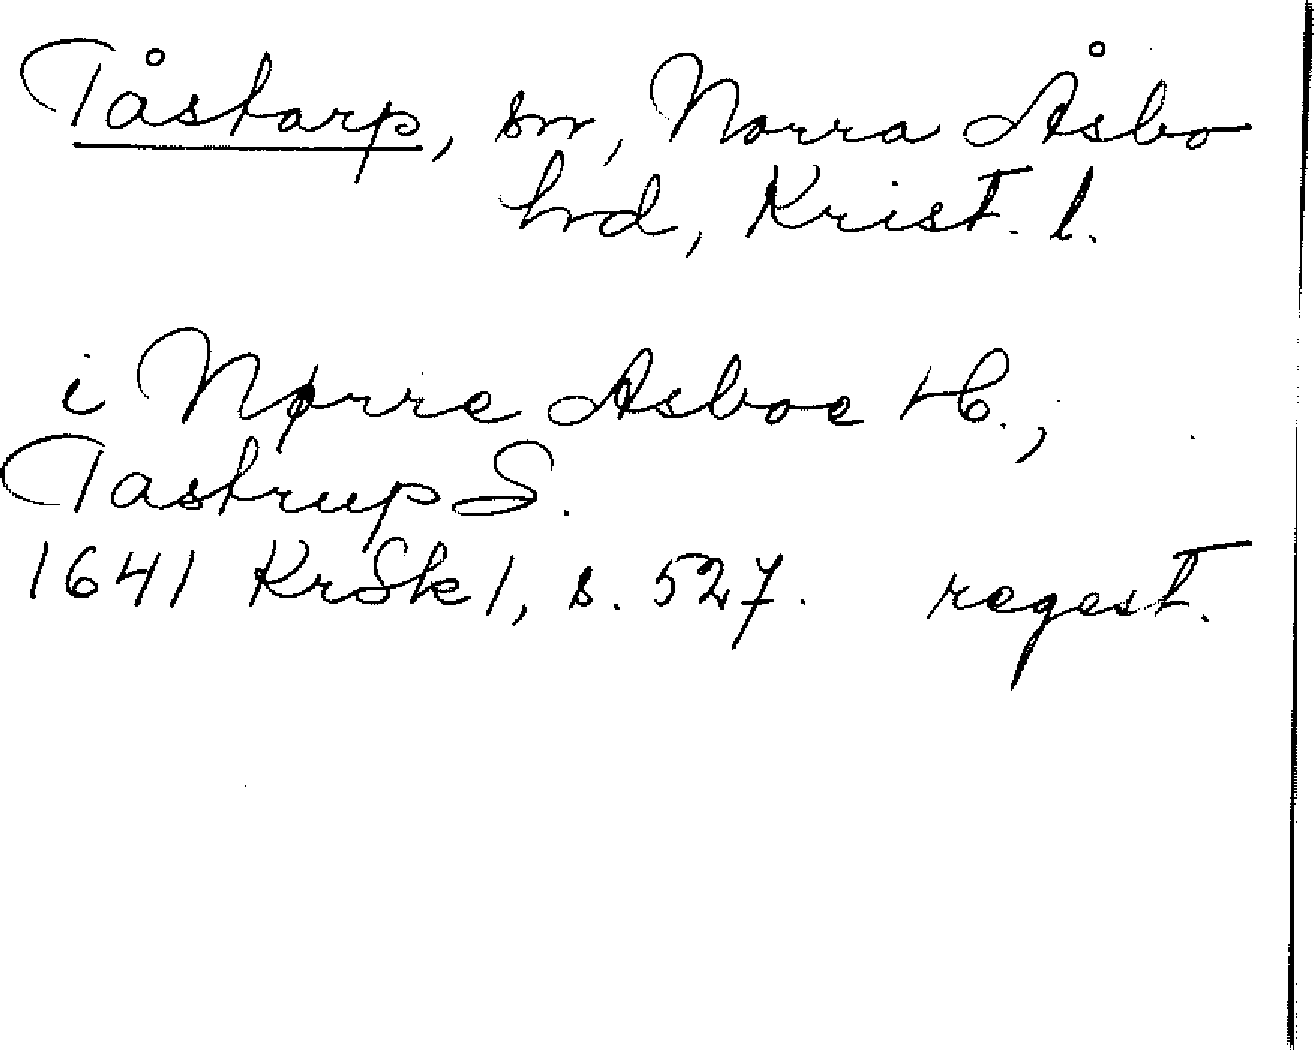 Tåstarp, sn, Norra Åsbo
hrd, Krist. l.
i Nørre Asboe H.,
Tastrup S.
1641 KrSk 1, s. 527. regest.